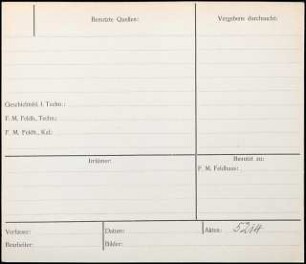 Benutzte Quellen:
Vergebens durchsucht:
Geschichtsbl. f. Techn.:
F. M. Feldh., Techn.:
F. M. Feldh., Kal.:
Irrtümer:
Benutzt zu:
F. M. Feldhaus:
Verfasser:
Datum:
Akten: 5214
Bearbeiter:
Bilder: